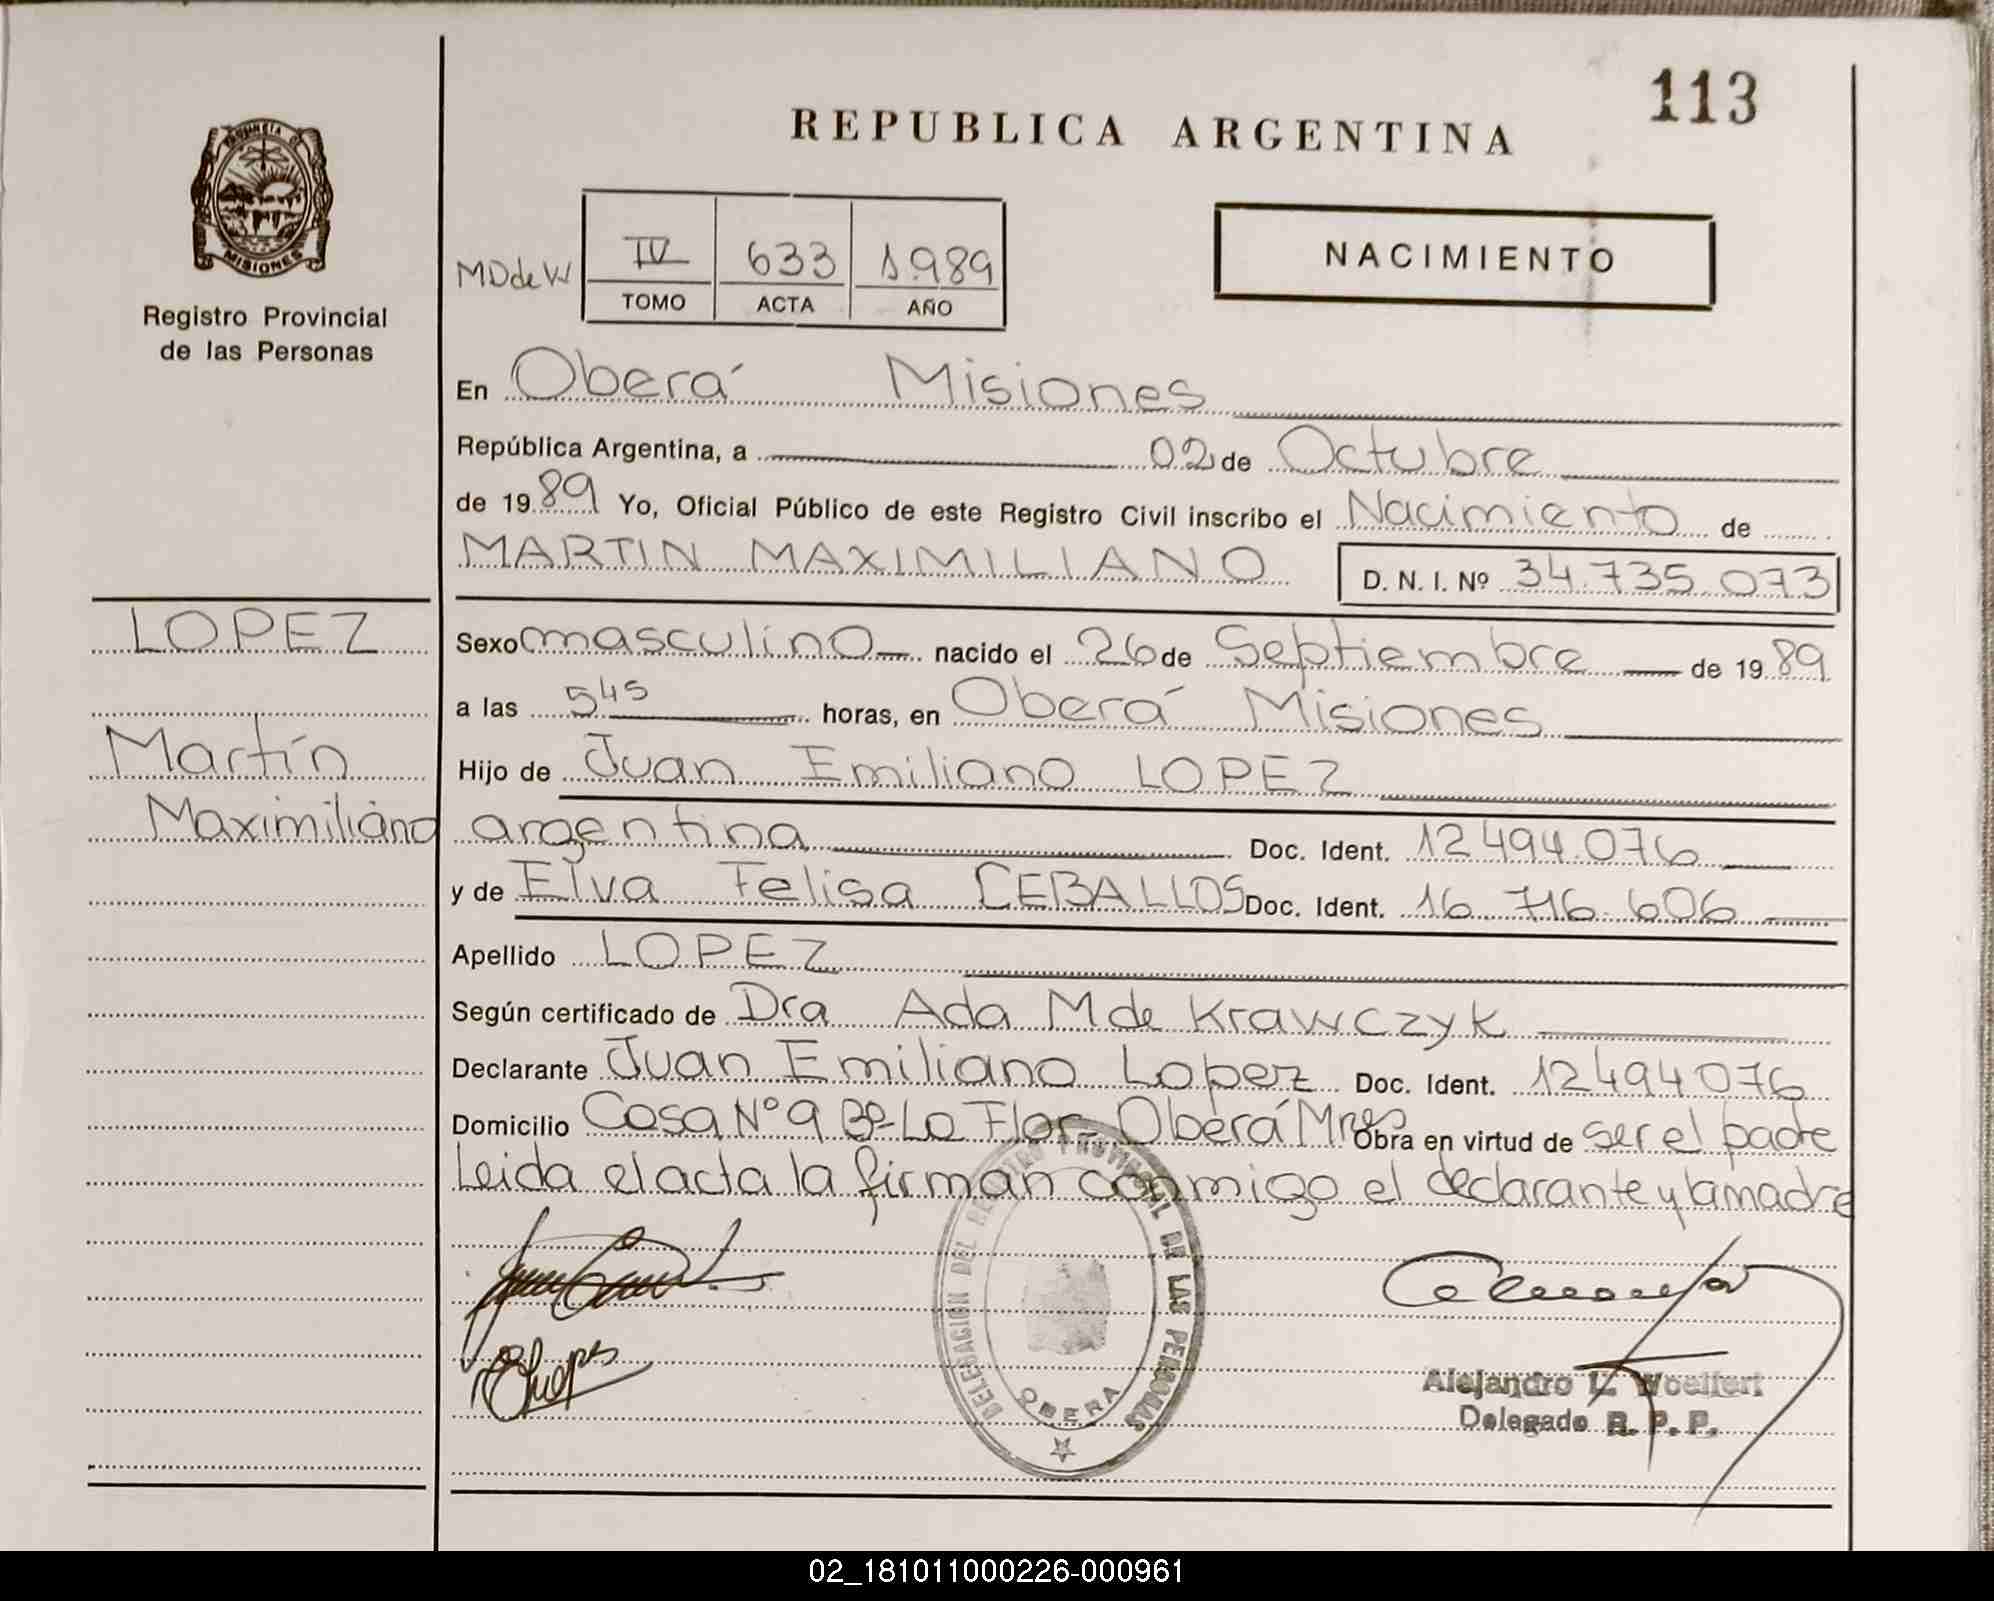 113
REPUBLICA ARGENTINA
PROVINCIA D
MISIONES
Registro Provincial
de las Personas
MDdeW
IV 633 1.989
TOMO ACTA AÑO
NACIMIENTO
En Oberá Misiones
República Argentina, a 02 de Octubre
de 1989 Yo, Oficial Público de este Registro Civil inscribo el Nacimiento de
MARTIN MAXIMILIANO D. N. I. Nº 34.735.073
LOPEZ
Martín
Maximiliano
Sexo masculino nacido el 26 de Septiembre de 1989
a las 5 45 horas, en Oberá Misiones
Hijo de Juan Emiliano LOPEZ
argentina Doc. Ident. 12494.076
y de Elva Felisa CEBALLOS Doc. Ident. 16.716.606
Apellido LOPEZ
Según certificado de Dra Ada M de Krawczyk
Declarante Juan Emiliano Lopez Doc. Ident. 12494076
Domicilio Casa Nº 9 Bº La Flor Oberá Mnes Obra en virtud de ser el padre
Leida el acta la firman conmigo el declarante y la madre
DELEGACION DEL REGISTRO PROVINCIAL DE LAS PERSONAS
OBERA
Alejandro L. Woelfert
Delegado R. P. P.
02_181011000226-000961